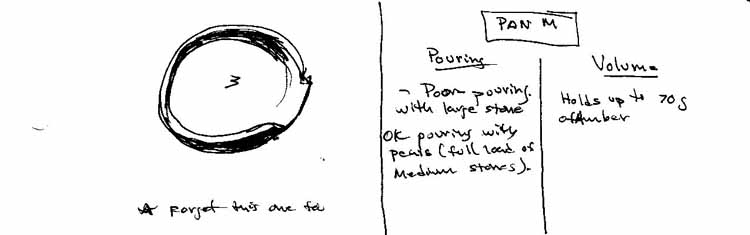 M
* Forget this one for
PAN M
Pouring
- Poor pouring.
with large stone
OK pouring with
pearls (full load of
Medium stones).
Volume
Holds up to 70g
of Amber